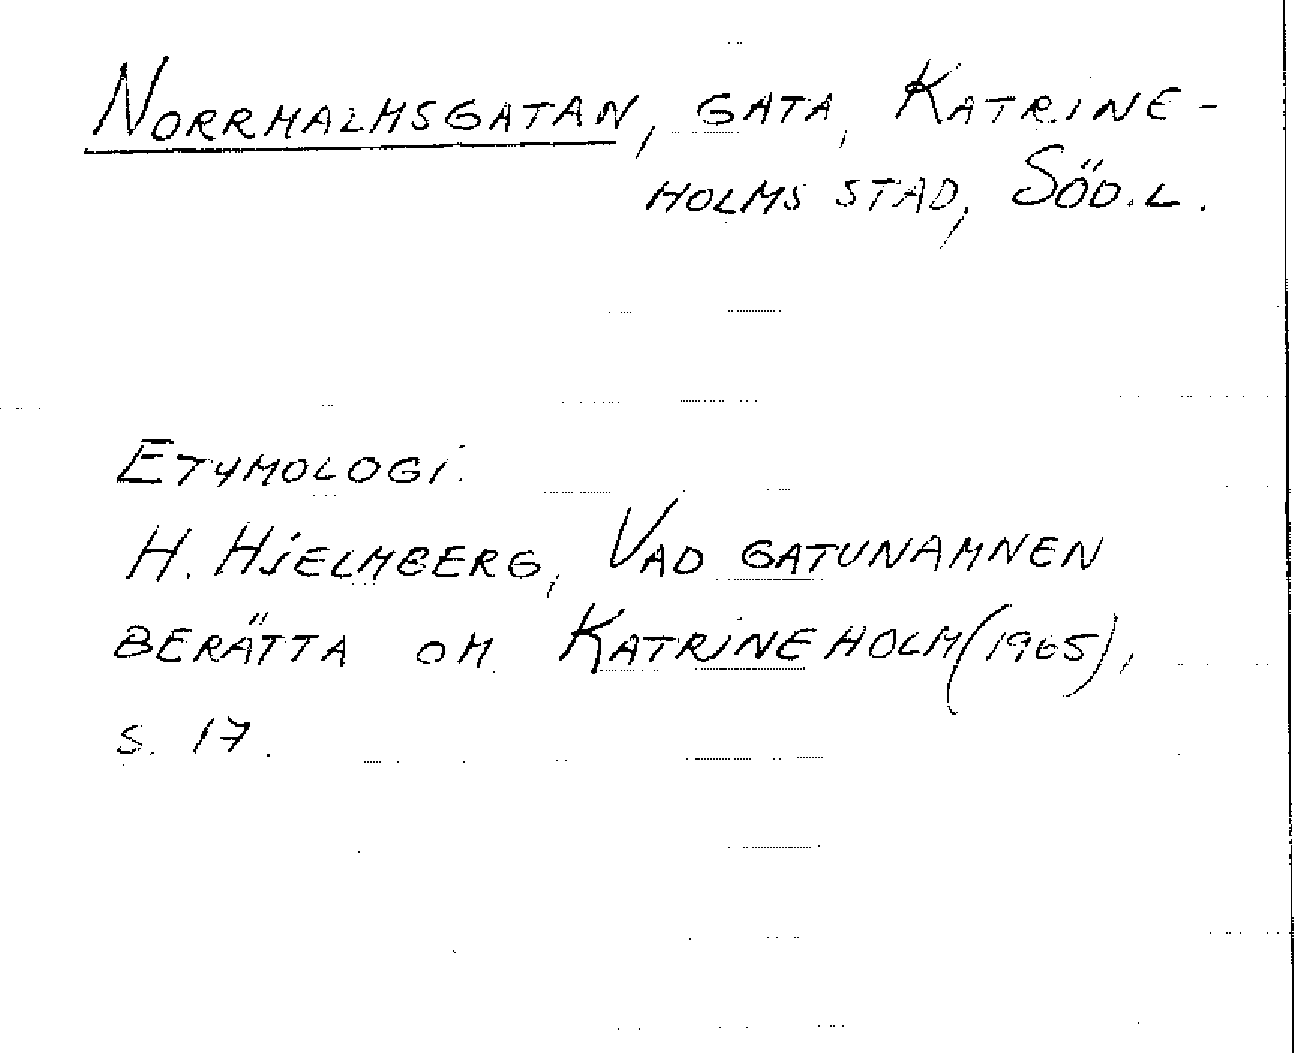 NORRMALMSGATAN, GATA, KATRINE-
HOLMS STAD, SÖD.L.
ETYMOLOGI.
H. HJELMBERG, VAD GATUNAMNEN
BERÄTTA OM KATRINEHOLM (1965),
S. 17.